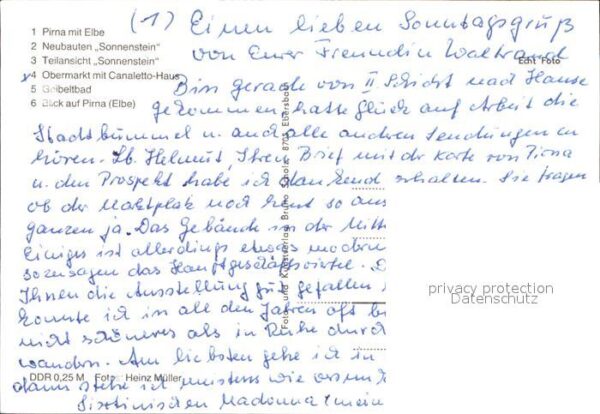 (1) Einen lieben Sonntagsgruß
von Eurer Freundin Waltraud
1 Pirna mit Elbe
2 Neubauten „Sonnenstein"
3 Teilansicht „Sonnenstein"
4 Obermarkt mit Canaletto-Haus
5 Geibeltbad
6 Blick auf Pirna (Elbe)
Echt Foto
Bin gerade von II Schicht nach Hause
gekommen, hatte Glück auf Arbeit die
Stadtbummel u. auch alle anderen Sendungen zu
hören. Lb. Helmut, Ihren Brief mit der Karte von Pirna
u. den Prospekt habe ich dankend erhalten. Sie fragen
ob der Marktplatz noch heut so aus
ganzen ja. Das Gebäude in der Mitte
Einiges ist allerdings etwas modern
sozusagen das Hauptgeschäftsviertel. D
Ihnen die Ausstellung gut gefallen
konnte ich in all den Jahren oft be
nicht schöneres als in Ruhe durch
wandern. Am liebsten gehe ich in
dann stehe ich meistens wie
Sixtinischen Madonna (mein
Foto- und Kunstverlag Bruno Scholz, 8705 Ebersbach
DDR 0,25 M Foto: Heinz Müller
privacy protection
Datenschutz